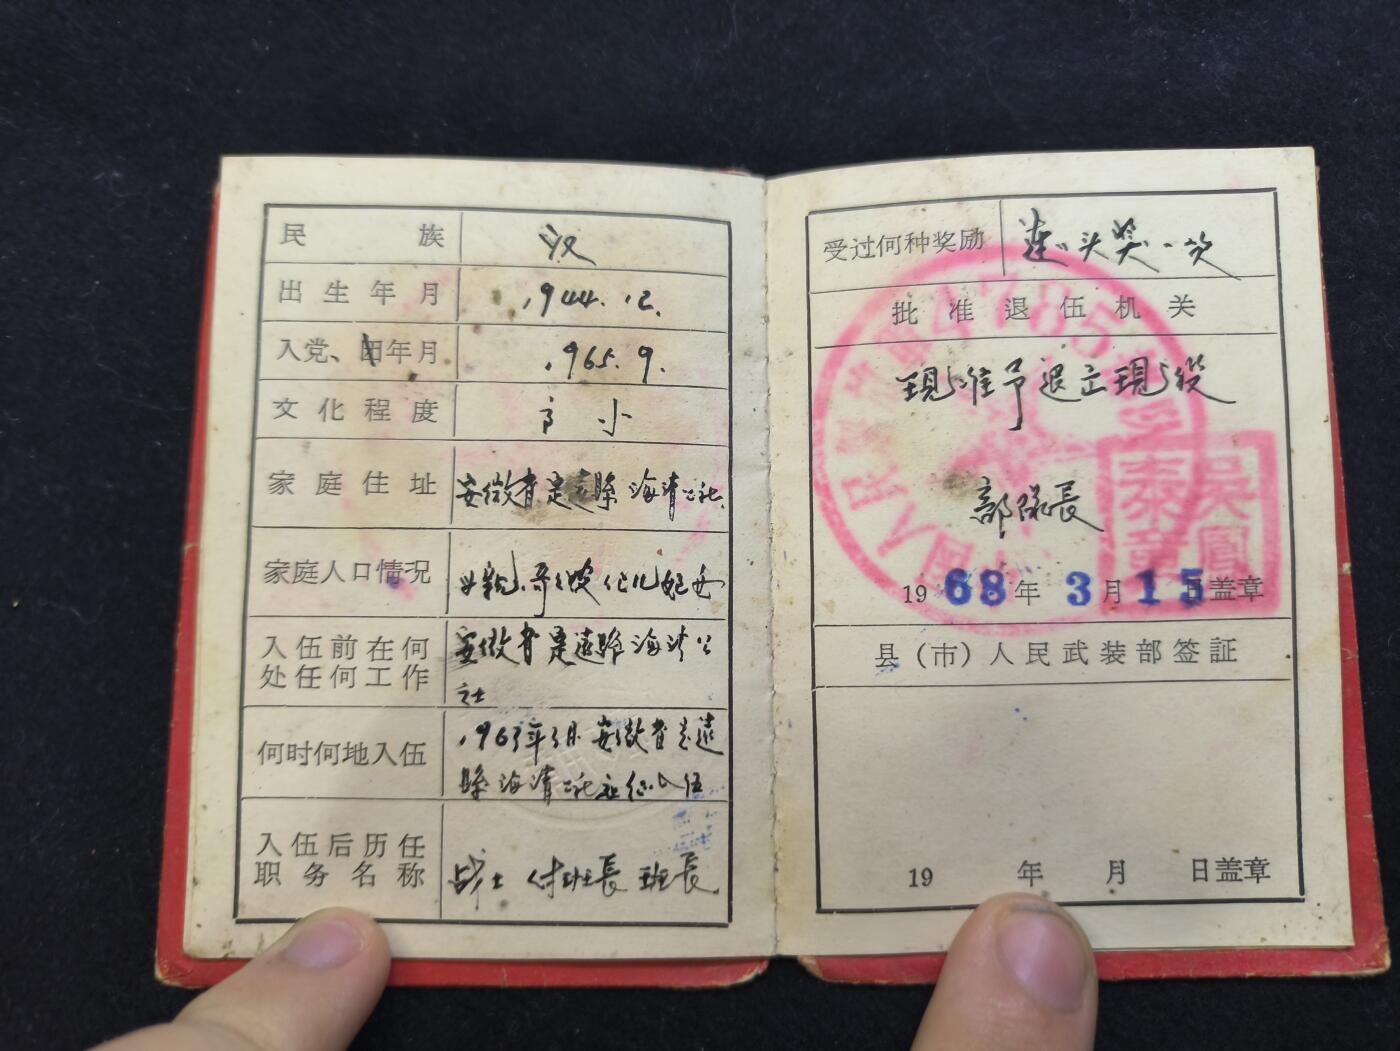 民族 汉
出生年月 1944.12.
入党、团年月 1965.9.
文化程度 高小
家庭住址 安徽省定遠縣海清公社
家庭人口情况 母親.哥嫂
入伍前在何
处任何工作
安徽省定遠縣海清公
社
何时何地入伍
1963年3月安徽省定遠
縣海清公社应征入伍
入伍后历任
职务名称
战士 付班長 班長
受过何种奖励 连 奖一次
批准退伍机关
現准予退出現役
部隊長
吳鳳
泰章
1968年3月15日盖章
县（市）人民武装部签証
19 年 月 日盖章